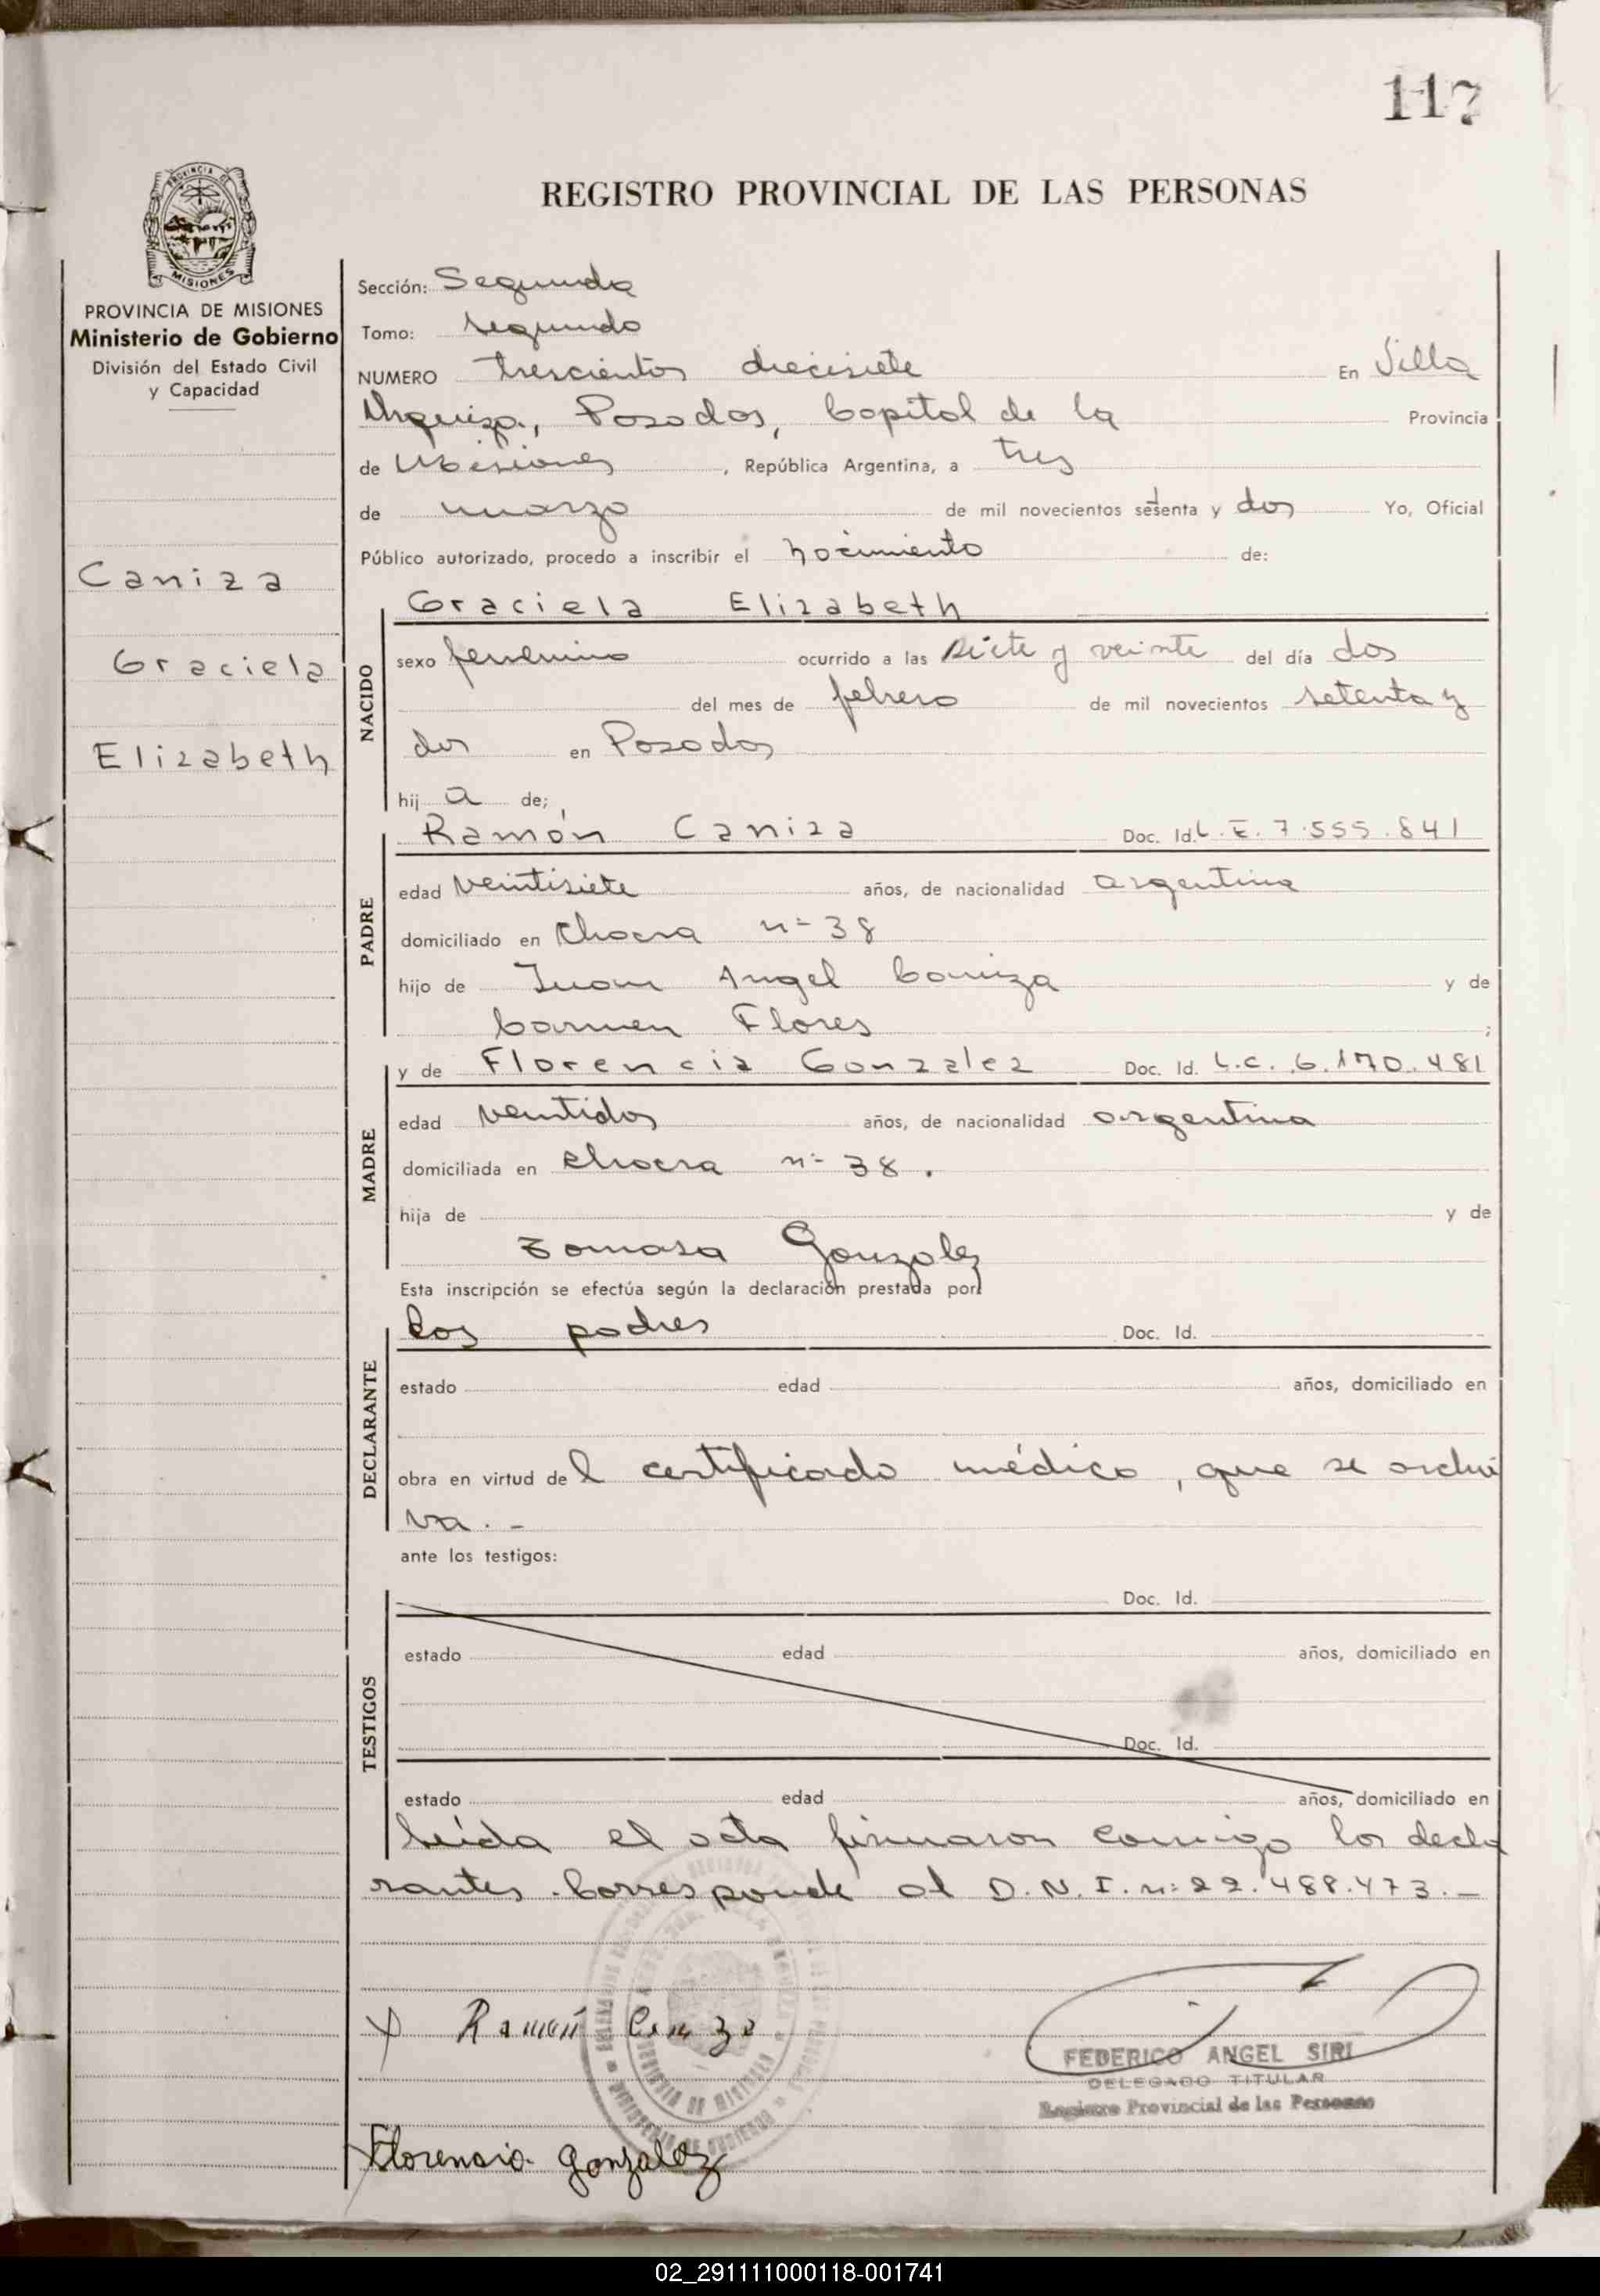 117
REGISTRO PROVINCIAL DE LAS PERSONAS
MISIONES
PROVINCIA DE MISIONES
Ministerio de Gobierno
División del Estado Civil
y Capacidad
Caniza
Graciela
Elizabeth
Sección: Segunda
Tomo: segundo
NUMERO trescientos diecisiete En Villa
Urquiza, Posadas, Capital de la Provincia
de Misiones, República Argentina, a tres
de marzo de mil novecientos setenta y dos Yo, Oficial
Público autorizado, procedo a inscribir el nacimiento de:
NACIDO
Graciela Elizabeth
sexo femenino ocurrido a las siete y veinte del día dos
del mes de febrero de mil novecientos setenta y
dos en Posadas
hija de;
PADRE
Ramón Caniza Doc. Id. L.E. 7.555.841
edad veintisiete años, de nacionalidad argentina
domiciliado en Chacra nº 38
hijo de Juan Angel Caniza y de
Carmen Flores ;
MADRE
y de Florencia Gonzalez Doc. Id. L.C. 6.170.481
edad ventidos años, de nacionalidad argentina
domiciliada en Chacra nº 38.
hija de y de
Tomasa Gonzalez
Esta inscripción se efectúa según la declaración prestada por:
DECLARANTE
los padres Doc. Id.
estado edad años, domiciliado en
obra en virtud del certificado médico, que se archi
va.-
ante los testigos:
TESTIGOS
Doc. Id.
estado edad años, domiciliado en
Doc. Id.
estado edad años, domiciliado en
Leída el acta firmaron conmigo los decla
rantes. Corresponde al D.N.I. nº 22.488.473.-
x Ramón Caniza
FEDERICO ANGEL SIRI
DELEGADO TITULAR
Registro Provincial de las Personas
Florencia Gonzalez
02_291111000118-001741